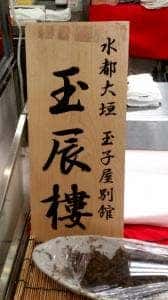 水都大垣 玉子屋別館
玉辰樓